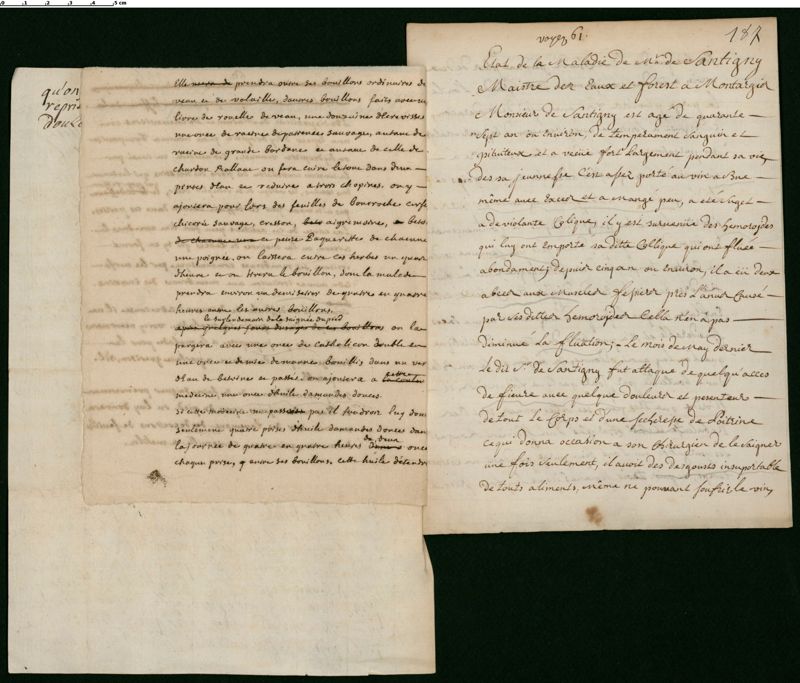 0 1 2 3 4 5 cm
qu'on
repri
Doule
Elle prendra outre ses bouillons ordinaires de
veau et de volaille, d'autres bouillons faits avec une
livre de rouelle de veau, une douzaine d'ecrevisses
une once de racine de patiences sauvages, autant de
racine de grande bardane et autant de celle de
chardon Rolland on fera cuire le tout dans deux
pintes d'eau et reduire a trois chopines, on y
ajoutera pour lors des feuilles de bourroche cerfeuil
chicorée sauvage, cresson, aigremoine,
et petite Paquerettes de chacune
une poignée, on laissera cuire ces herbes un quart
d'heure et on tirera le bouillon, dont la malade
prendra environ un demisetier de quatre en quatre
heures outre les autres bouillons.
le surlendemain de la saignée du pied
apres quelques jours d'usages de ces bouillons on la
purgera avec une once de catholicon double et
une once et demie de manne bouillis dans un verre
d'eau de et passé on ajoutera a cette
medecine une once d'huile d'amandes douces.
si cette medecine ne pas il faudroit luy donner
seulement quatre prises d'huile d'amandes douces dans
la journée de quatre en quatre heures de deux onces
chaque prise, outre ses bouillons, cette huile detendra
voyez 61.
187
Etat de la Maladie de Mr. de Santigny
Maistre dez Eaux et forest a Montargis
Monsieur de Santigny est agé de quarante
sept an ou environ, de temperament sanguin et
pituiteux et a vecue fort Largement pendant sa vie
des sa jeunnesse C'est assez porté au vin a Bue
même avec Excez et a Mangé peu, a eté sujet
a de violante Colique, il y est survenüe des hemoroides
qui luy ont emporté sa ditte Collique qui ont fluée
abondament; depuis cinq an ou environ, il a eü deux
abcez aux Muscles fessiers prés L'anus Causé
par ses dittes hemoroides Cella n'en a pas
diminué la fluxion; Le mois de may dernier
le dit Sr. de Santigny fut attaqué de quelqu'accés
de fieure avec quelque douleurs et pesenteur
de tout le Corps et d'une secheresse de Poitrine
ce qui donna occasion a son Chirurgien de le saigner
une fois seulement, il avoit des desgousts insuportable
de touts aliments, même ne pouvant souffrir le vin,